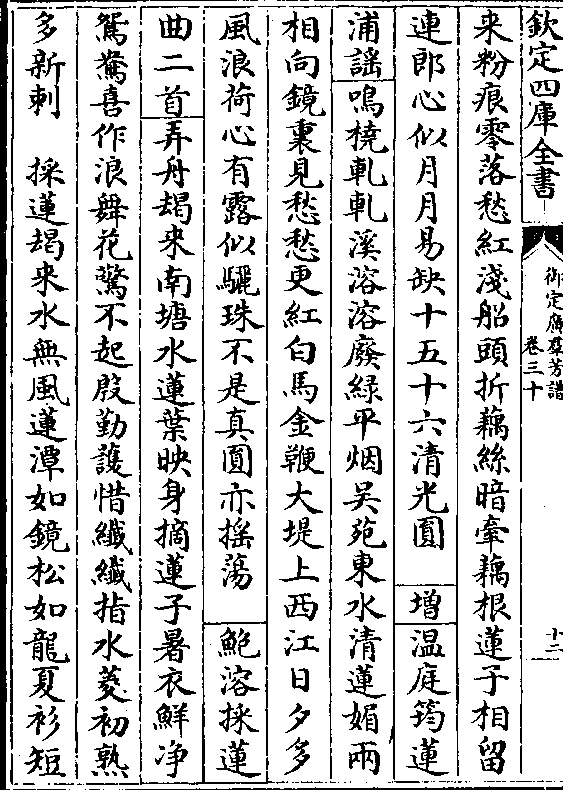 欽定四庫全書
御定廣羣芳譜
卷三十
十二
来粉痕零落愁紅淺船頭折藕絲暗牽藕根蓮子相留
連郎心似月月易缺十五十六清光圓　增溫庭筠蓮
浦謡鳴橈軋軋溪溶溶廢綠平烟吳苑東水清蓮媚兩
相向鏡裏見愁愁更紅白馬金鞭大堤上西江日夕多
風浪荷心有露似驪珠不是真圓亦摇蕩　鮑溶採蓮
曲二首弄舟朅来南塘水蓮葉映身摘蓮子暑衣鮮净
鴛鴦喜作浪舞花驚不起殷勤護惜纎纎指水菱初熟
多新刺　採蓮朅来水無風蓮潭如鏡松如龍夏衫短